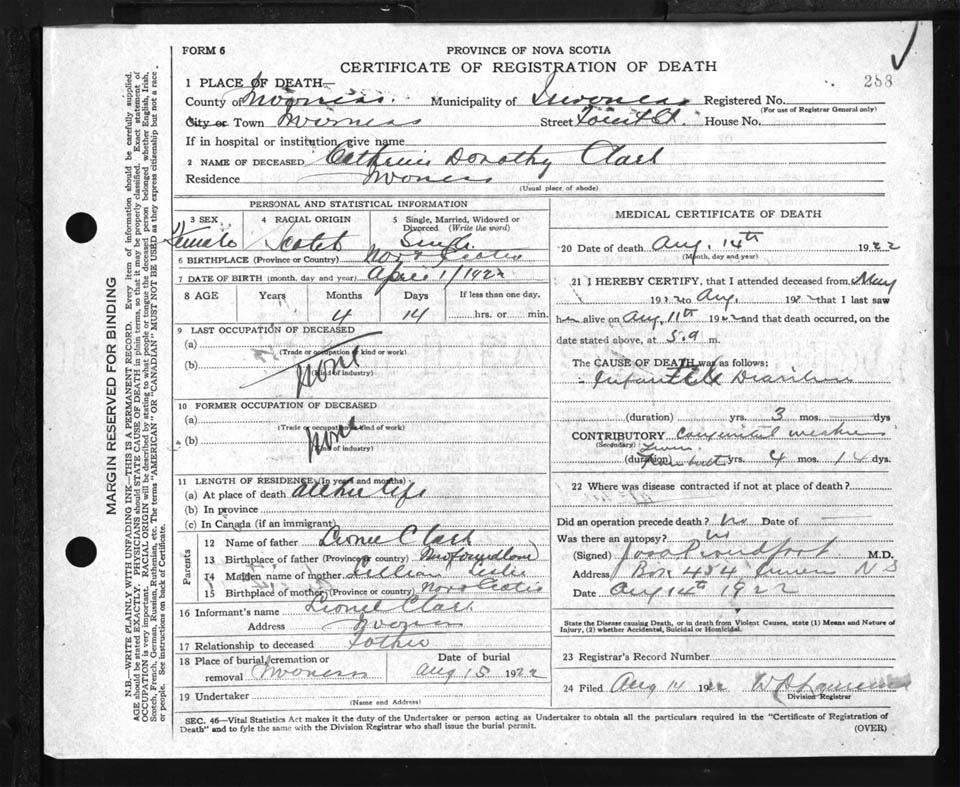 FORM 6
PROVINCE OF NOVA SCOTIA
CERTIFICATE OF REGISTRATION OF DEATH
288
1 PLACE OF DEATH—
County of Inverness. Municipality of Inverness Registered No.
(For use of Registrar General only)
City or Town Inverness Street Forest St. House No.
If in hospital or institution give name
2 NAME OF DECEASED Catherine Dorothy Clark
Residence Inverness
(Usual place of abode)
PERSONAL AND STATISTICAL INFORMATION
3 SEX 4 RACIAL ORIGIN 5 Single, Married, Widowed or Divorced (Write the word)
Female Scotch Single
6 BIRTHPLACE (Province or Country) Nova Scotia
7 DATE OF BIRTH (month, day and year) April 1/1922
8 AGE Years Months Days If less than one day,
4 14 hrs. or min.
9 LAST OCCUPATION OF DECEASED
(a)
(Trade or occupation or kind or work)
(b) None
(Kind of industry)
10 FORMER OCCUPATION OF DECEASED
(a)
(Trade or occupation or kind of work)
(b) None
(Kind of industry)
11 LENGTH OF RESIDENCE (In years and months)
(a) At place of death all her life
(b) In province
(c) In Canada (if an immigrant)
Parents
12 Name of father Lionel Clark
13 Birthplace of father (Province or country) Newfoundland
14 Maiden name of mother Lillian Leslie
15 Birthplace of mother (Province or country) Nova Scotia
16 Informant's name Lionel Clark
Address Inverness
17 Relationship to deceased Father
18 Place of burial, cremation or removal Inverness
Date of burial
Aug 15 1922
19 Undertaker
(Name and Address)
MEDICAL CERTIFICATE OF DEATH
20 Date of death Aug. 14th 1922
(Month, day and year)
21 I HEREBY CERTIFY, that I attended deceased from May
1922 to Aug. 1922 that I last saw
her alive on Aug. 11th 1922 and that death occurred, on the
date stated above, at 5.a m.
The CAUSE OF DEATH was as follows:
Infantile Diarrhoea
(duration) yrs. 3 mos. dys
CONTRIBUTORY congenital
(Secondary)
(duration) from birth yrs. 4 mos. 14 dys.
22 Where was disease contracted if not at place of death?
Did an operation precede death? No Date of
Was there an autopsy? No
(Signed) Proudfoot M.D.
Address Box 454 Inverness N S
Date Aug 14th 1922
State the Disease causing Death, or in death from Violent Causes, state (1) Means and Nature of
Injury, (2) whether Accidental, Suicidal or Homicidal.
23 Registrar's Record Number
24 Filed Aug 14 1922
Division Registrar
SEC. 46—Vital Statistics Act makes it the duty of the Undertaker or person acting as Undertaker to obtain all the particulars required in the "Certificate of Registration of
Death" and to fyle the same with the Division Registrar who shall issue the burial permit.
(OVER)
MARGIN RESERVED FOR BINDING
N.B.—WRITE PLAINLY WITH UNFADING INK—THIS IS A PERMANENT RECORD. Every item of information should be carefully supplied.
AGE should be stated EXACTLY. PHYSICIANS should STATE CAUSE OF DEATH in plain terms, so that it may be properly classified. Exact statement of
OCCUPATION is very important. RACIAL ORIGIN will be described by stating to what people or tongue the deceased person belonged whether English, Irish,
Scotch, French, German, Russian, Ruthenian, etc. The terms "AMERICAN" or "CANADIAN" MUST NOT BE USED as they express citizenship but not a race
or people. See instructions on back of Certificate.